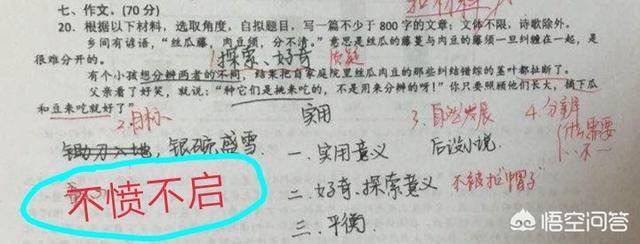 七、作文。(70分)
20. 根据以下材料，选取角度，自拟题目，写一篇不少于 800 字的文章，文体不限，诗歌除外。
乡间有谚语，“丝瓜藤，肉豆须，分不清。”意思是丝瓜的藤蔓与肉豆的须一旦纠缠在一起，是
很难分开的。
1探索、好奇
有个小孩想分辨两者的不同，结果把自家庭院里丝瓜肉豆的那些纠结错综的茎叶都拉断了。
父亲看了好笑，就说：“种它们是挑来吃的，不是用来分辨的呀！”你只要照顾他们长大，摘下瓜
和豆来吃就好了”
2.目标
实用
3.自然发展
4.分辨
什么需要
不
锄刀入地，银碗盛雪
一.实用意义
后设小说.
不愤不启
二.好奇、探索意义
不被扣帽子
三.平衡.
悟空问答